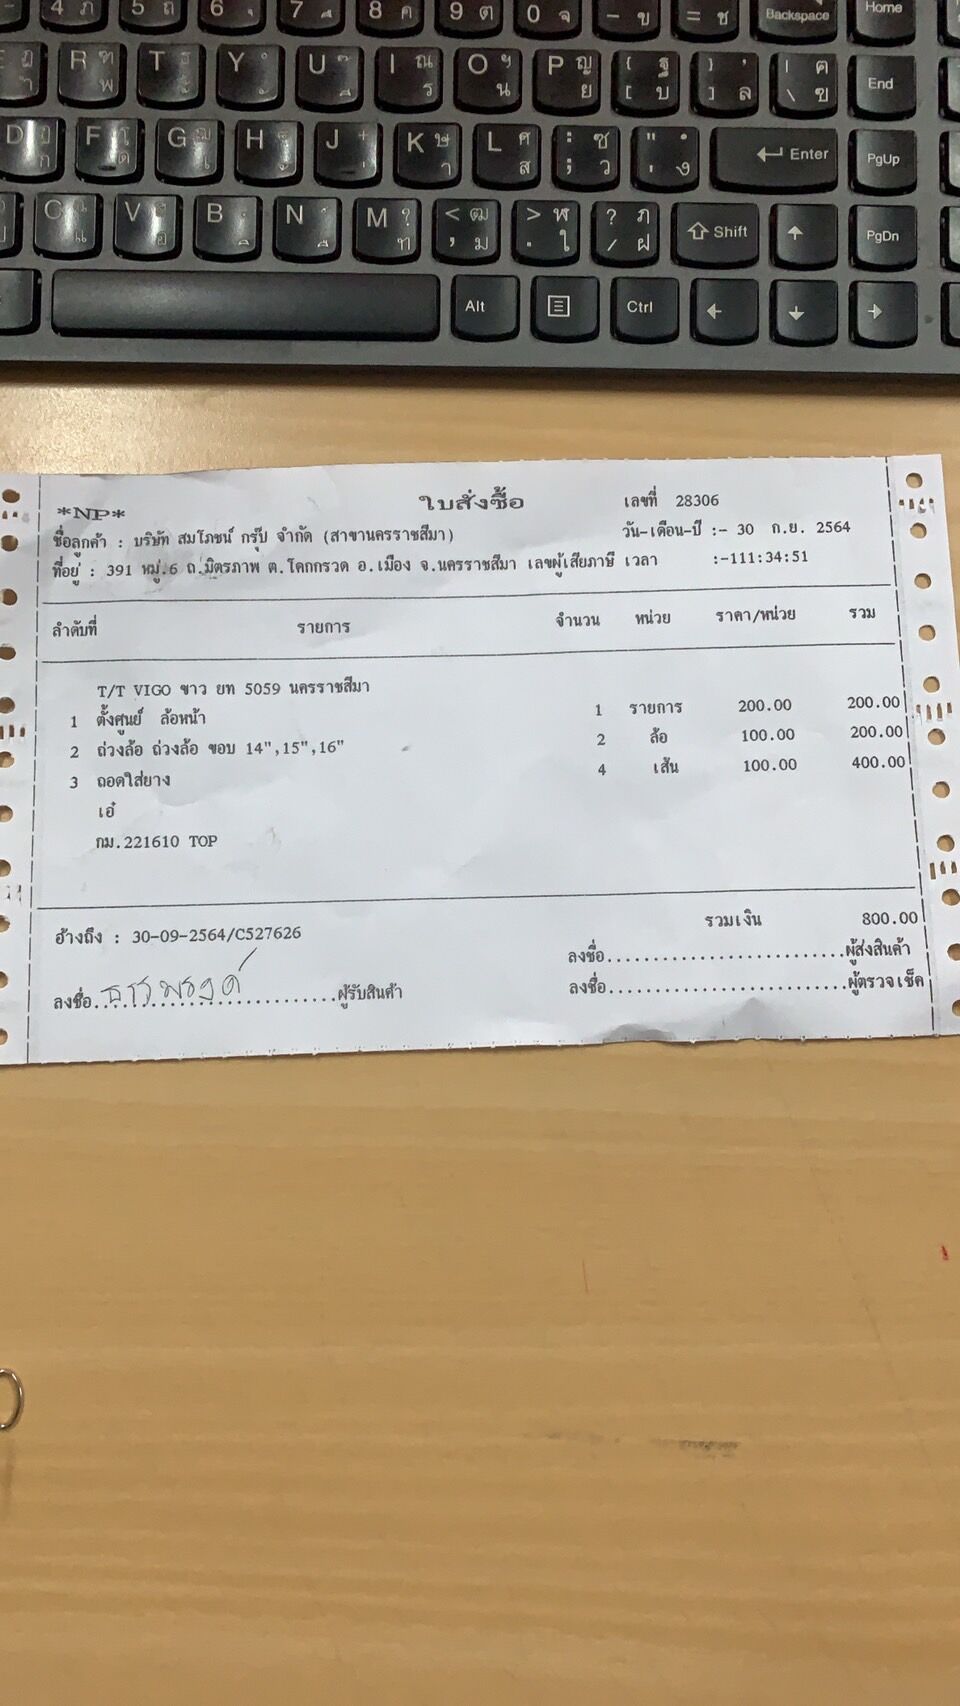 4 ภ 5 ถ 6 ุ 7 ึ 8 ค 9 ต 0 จ - ข = ช Backspace Home
R ฑ พ T ธ ะ Y ั U ๊ ี I ณ ร O ฯ น P ญ ย { ฐ [ บ } , ] ล | ฅ \ ฃ End
D ฏ ก F โ ด G ฌ เ H ็ ้ J ๋ ่ K ษ า L ศ ส : ซ ; ว " . ' ง Enter PgUp
C ฉ แ V ฮ อ B ฺ ิ N ์ ื M ? ท < ฒ , ม > ฬ . ใ ? ฦ / ฝ Shift PgDn
Alt Ctrl
*NP* ใบสั่งซื้อ เลขที่ 28306
ชื่อลูกค้า : บริษัท สมโภชน์ กรุ๊ป จำกัด (สาขานครราชสีมา) วัน-เดือน-ปี :- 30 ก.ย. 2564
ที่อยู่ : 391 หมู่.6 ถ.มิตรภาพ ต.โคกกรวด อ.เมือง จ.นครราชสีมา เลขผู้เสียภาษี เวลา :-111:34:51
ลำดับที่ รายการ จำนวน หน่วย ราคา/หน่วย รวม
T/T VIGO ขาว ยท 5059 นครราชสีมา
1 ตั้งศูนย์ ล้อหน้า 1 รายการ 200.00 200.00
2 ถ่วงล้อ ถ่วงล้อ ขอบ 14",15",16" 2 ล้อ 100.00 200.00
3 ถอดใส่ยาง 4 เส้น 100.00 400.00
เอ๋
กม.221610 TOP
รวมเงิน 800.00
อ้างถึง : 30-09-2564/C527626
ลงชื่อ........................ผู้ส่งสินค้า
ลงชื่อ........................ผู้รับสินค้า
ลงชื่อ........................ผู้ตรวจเช็ค